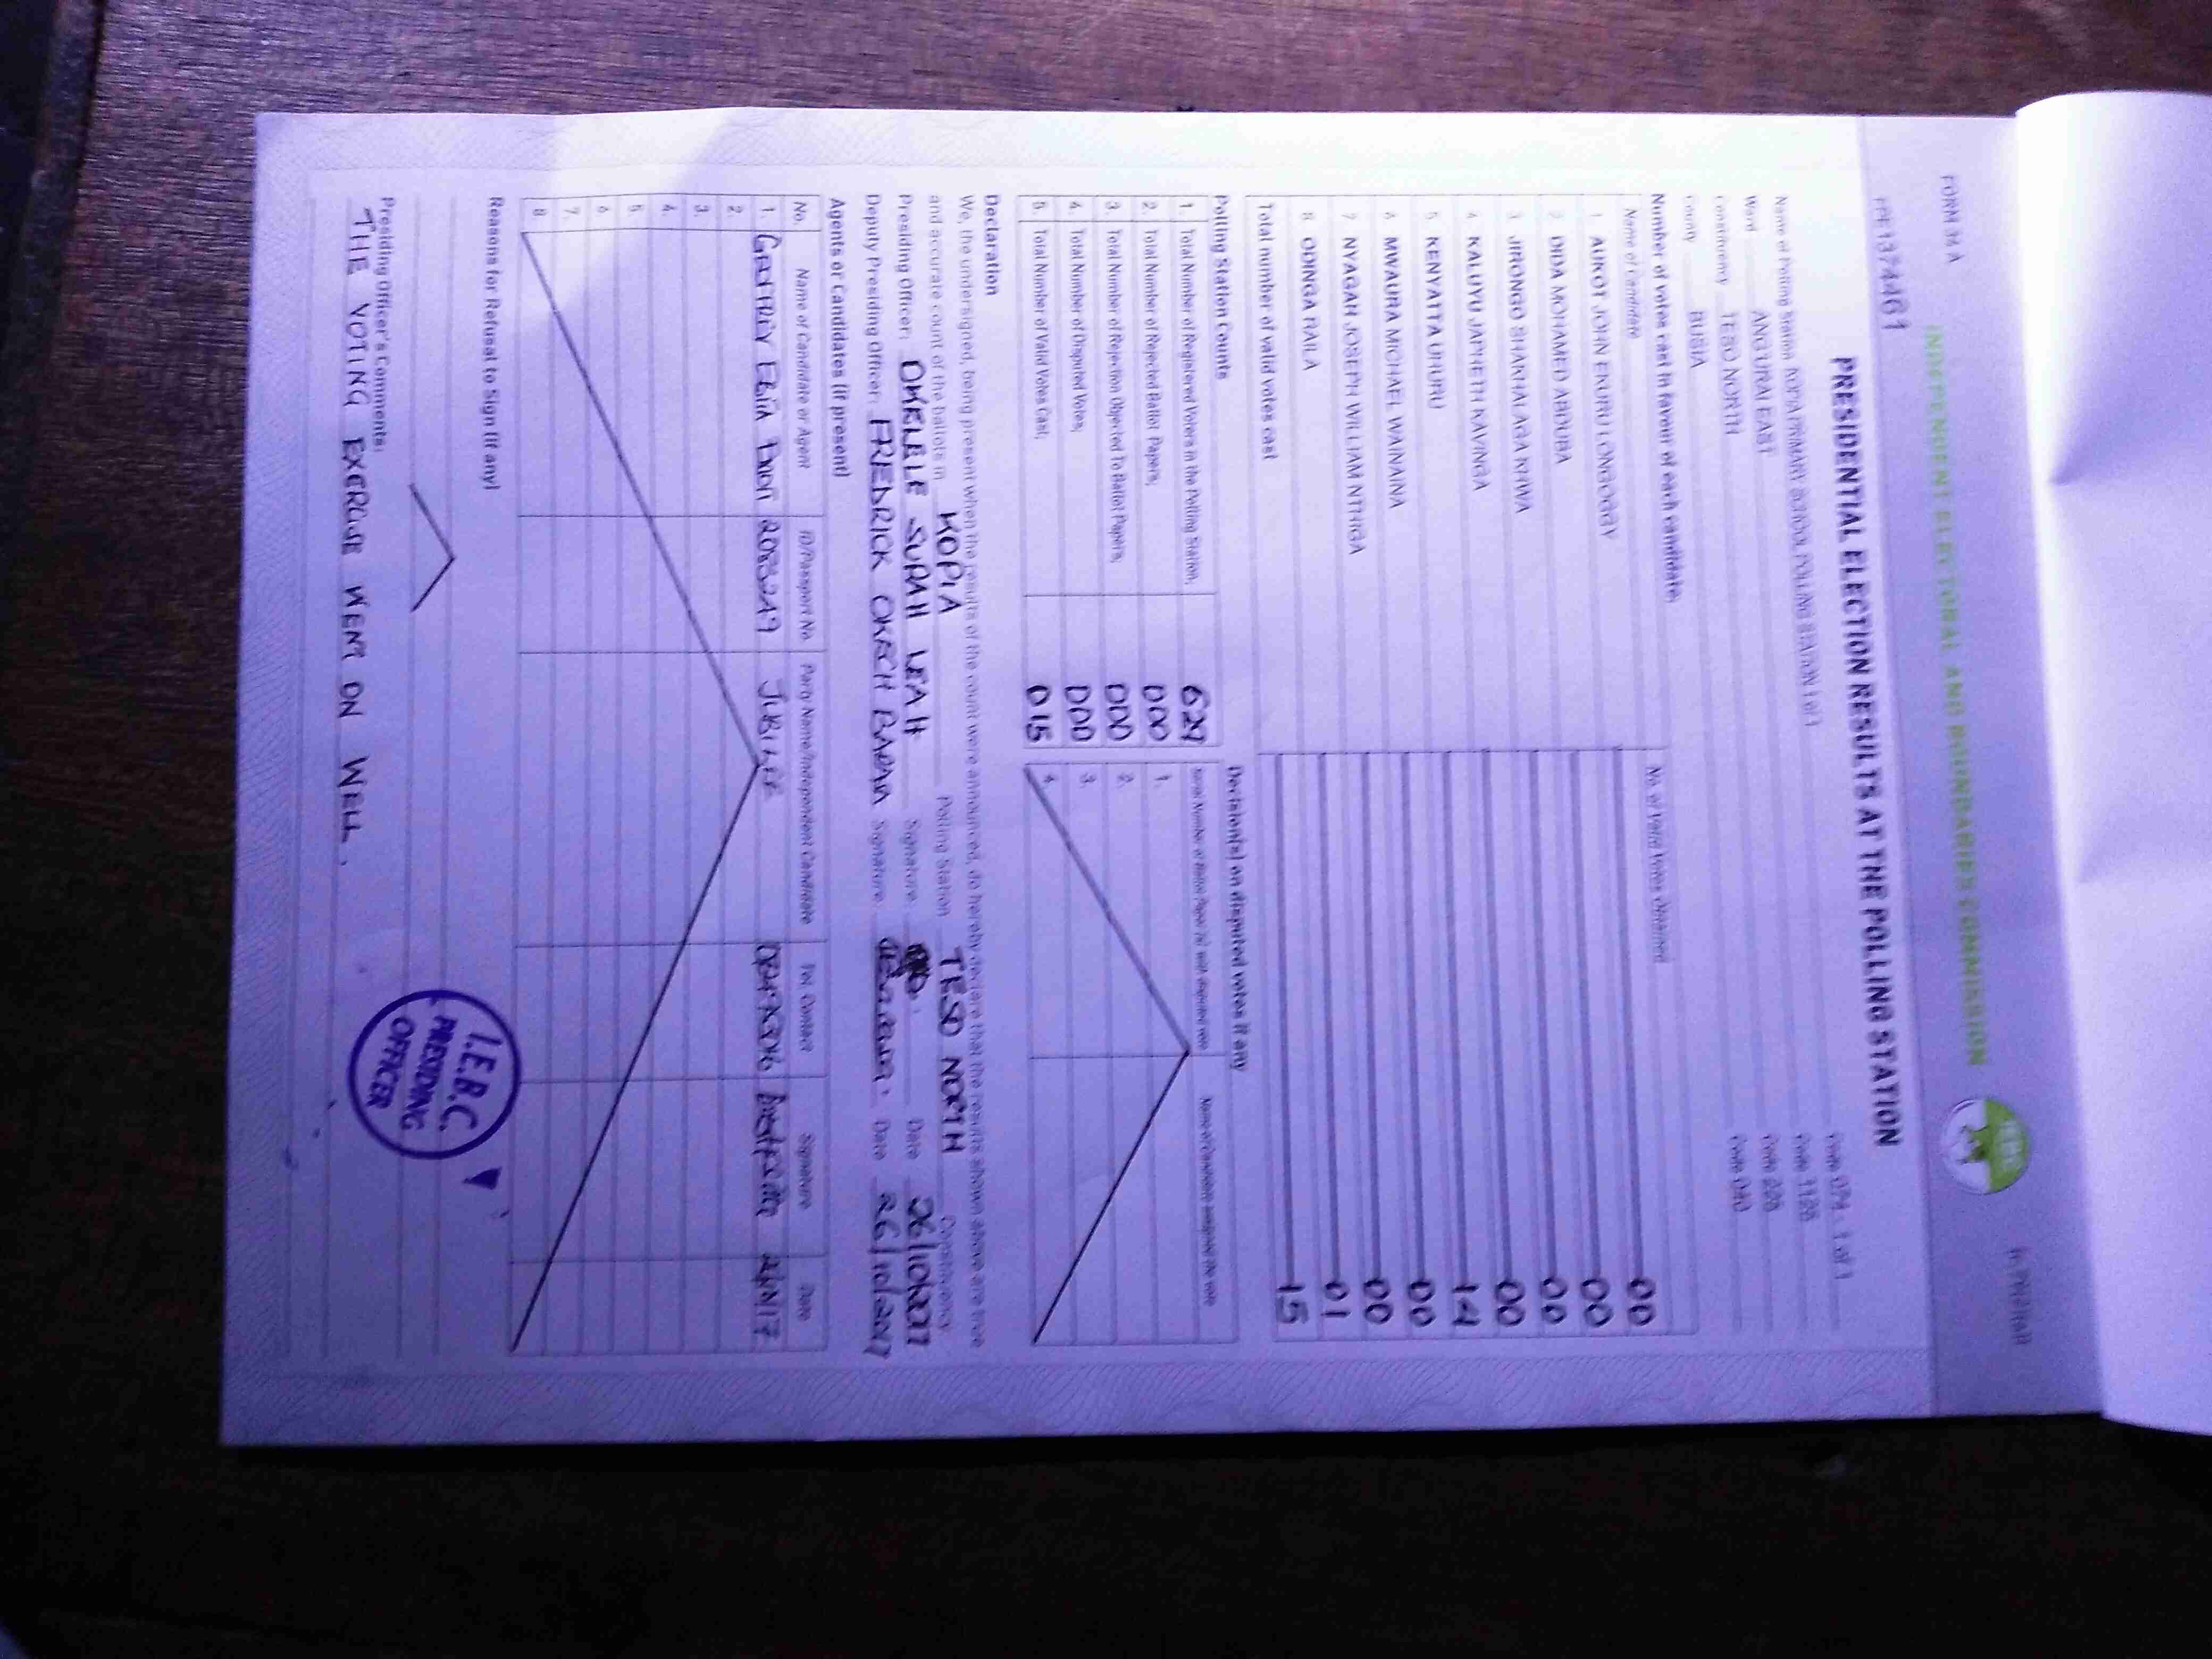 FORM 34 A
INDEPENDENT ELECTORAL AND BOUNDARIES COMMISSION
PRESIDENTIAL ELECTION RESULTS AT THE POLLING STATION
Name of Polling Station KOPIA PRIMARY SCHOOL POLLING STATION 1 of 1 Code 074 - 1 of 1
Ward ANG'URAI EAST
Constituency TESO NORTH
County BUSIA Code 040
Number of votes cast in favour of each candidate:
Name of candidate No. of Valid Votes Obtained
1 AUKOT JOHN EKURU LONGOGGY 00
2 DIDA MOHAMED ABDUBA 00
3 JIRONGO SHAKHALAGA KHWA 00
4 KALUYU JAPHETH KAVINGA 00
5 KENYATTA UHURU 14
6 MWAURA MICHAEL WAINAINA 00
7 NYAGAH JOSEPH WILLIAM NTHIGA 00
8 ODINGA RAILA 01
Total number of valid votes cast 15
Polling Station Counts
1. Total Number of Registered Voters in the Polling Station;
2. Total Number of Rejected Ballot Papers; 000
3. Total Number of Rejection Objected To Ballot Papers; 000
4. Total Number of Disputed Votes; 000
5. Total Number of Valid Votes Cast; 015
Decision(s) on disputed votes if any
Serial Number of Ballot Paper (s) with disputed vote Name of Candidate assigned the vote
1.
2.
3.
4.
Declaration
We, the undersigned, being present when the results of the count were announced, do hereby declare that the results shown above are true
and accurate count of the ballots in KOPIA Polling Station TESO NORTH Constituency
Presiding Officer: SURAH LEAH Signature Date 26/10/2017
Deputy Presiding Officer: FREDRICK OKACH BARASA Signature Date 26/10/2017
Agents or Candidates (if present)
No. Name of Candidate or Agent ID/Passport No. Party Name/Independent Candidate Tel. Contact Signature Date
1. JUBILEE
2.
3.
4.
5.
6.
7.
8.
Reasons for Refusal to Sign (if any)
Presiding Officer's Comments:
THE VOTING EXERCISE WENT ON WELL.
I.E.B.C.
PRESIDING
OFFICER